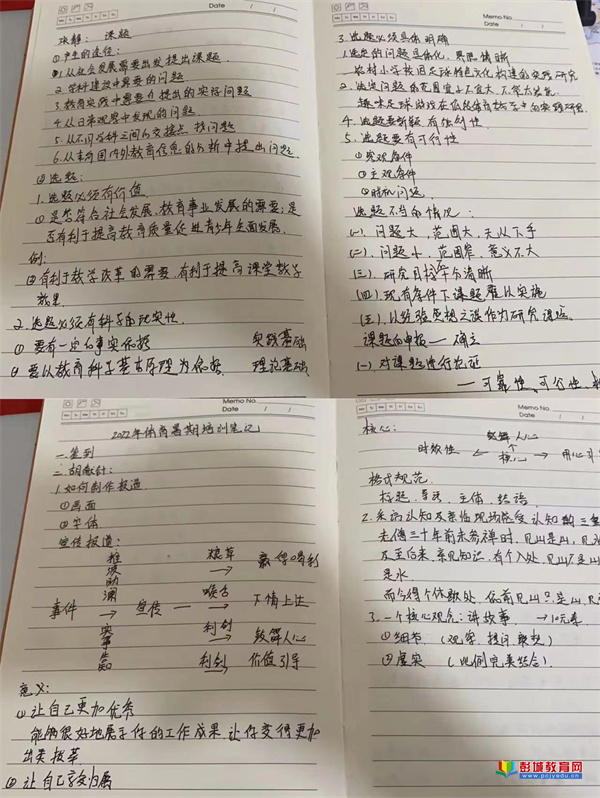 Memo No.
Date / /
课题
①产生的途径：
1.从社会发展需要出发提出课题.
2.学科建设中需要的问题
3.教育实践中需要提出的实际问题
4.从日常观察中发现的问题
5.从不同学科之间的交接点找问题
6.从国内外教育信息的分析中提出问题.
②选题：
1.选题必须有价值.
①是否符合社会发展、教育事业发展的需要；是
否有利于提高教育质量促进青少年全面发展.
例：
②有利于教学改革的需要，有利于提高课堂教学
效果
2.选题必须有科学的现实性.
①要有一定的事实依据 实践基础
②要以教育科学基本原理为依据 理论基础
Memo No.
Date / /
3.选题必须具体明确
1.选定的问题具体化，界限清晰
农村小学校园足球特色文化构建的实践研究
2.选定问题的范围宜小不宜大，不
4.选题要新颖有独创性
5.选题要有可行性
①客观条件
②主观条件
③时机问题
选题不当的情况：
(一).问题大，范围大，无从下手
(二).问题小，范围窄，意义不大
(三).研究目标不清晰
(四).现有条件下课题难以实施
(五).以经验思想之谈作为研究课题.
课题的申报——确立
(一)对课题进行论证
——可靠性、可行性、
Memo No.
Date / /
2022年体育暑期培训笔记
一.签到
二.胡献计：
1.如何制作报道.
①画面
②字体
宣传报道：
推波助澜 粮草 → 赢得
喉舌 → 下情上达
事件 → 宣传
实事告知 利剑 → 缓解人心
利剑 → 价值引导
意义：
①让自己更加优秀
能够很好地展示你的工作成果，让你变得更加
出类拔萃
②让自己
Memo No.
Date
核心：
缓解人心
时效性 ← 核心 → 用心
格式规范.
标题、导语、主体、结语.
2.采访认知及亲临现场感受认知的三
老僧三十年前未参禅时，见山是山，见水
及至后来，亲见知识，有个入处，见山不是山
是水
而今得个休歇处，依前见山只是山，见
3.一个核心观念：讲故事 →
①细节（观察、提问、
②虚实（比例完美结合）.
彭城教育网
www.pcjyedu.cn